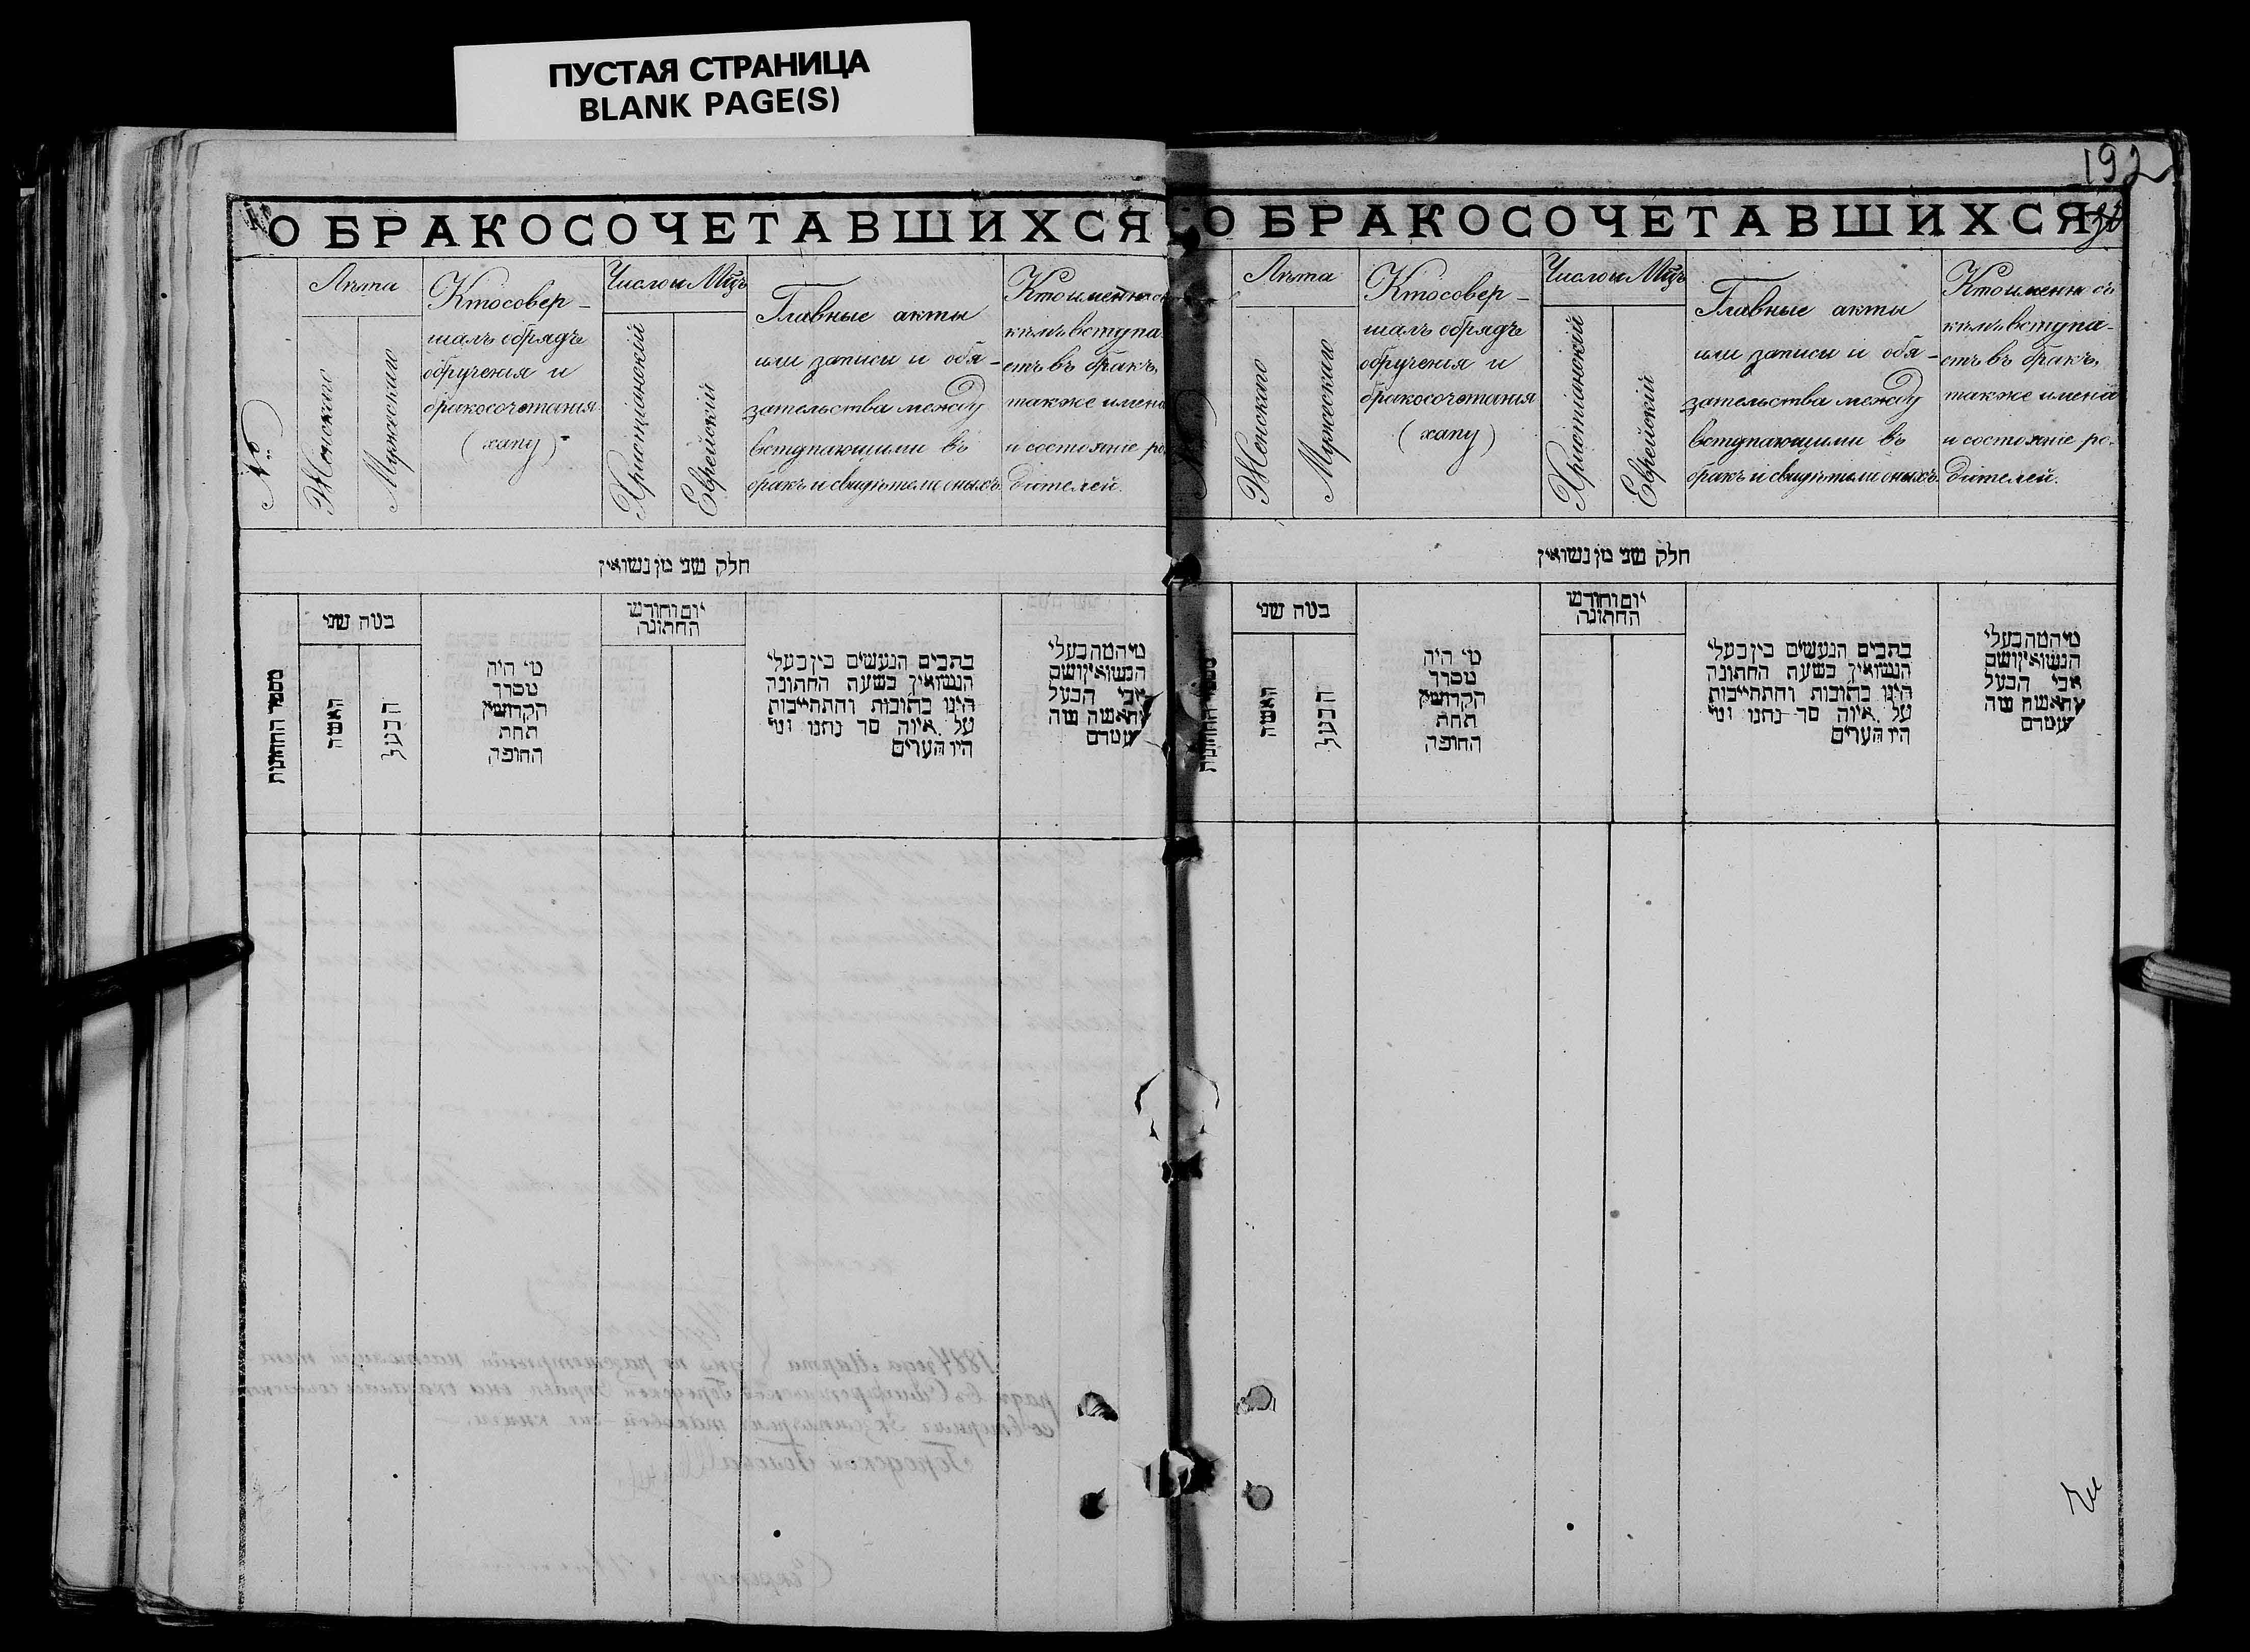 ПУСТАЯ СТРАНИЦА
BLANK PAGE(S)
О БРАКОСОЧЕТАВШИХСЯ
№
Лѣта
Женскаго
Мужескаго
Кто совер-
шалъ обрядъ
обрученія и
бракосочетанія
(хапу)
Число и Мцъ
Христіанскій
Еврейскій
Главные акты
или записи и обя-
зательства между
вступающими въ
бракъ и свидѣтели оныхъ.
Кто именно съ
кѣмъ вступа-
етъ въ бракъ,
также имена
и состояніе ро-
дителей.
חלק שני מן נשואין
מספר החתונות
כמה שני
האשה
הבעל
מי היה
מסדר
הקדושין
תחת
החופה
יום וחודש
החתונה
כתבים הנעשים בין בעלי
הנשואין בשעת החתונה
היינו כתובות והתחייבות
על איזה סך נתנו ומי
היו העדים
מי המה בעלי
הנשואין ושם
אבי הבעל
והאשה מה
מעמדם
192
О БРАКОСОЧЕТАВШИХСЯ
Лѣта
Женскаго
Мужескаго
Кто совер-
шалъ обрядъ
обрученія и
бракосочетанія
(хапу)
Число и Мцъ
Христіанскій
Еврейскій
Главные акты
или записи и обя-
зательства между
вступающими въ
бракъ и свидѣтели оныхъ.
Кто именно съ
кѣмъ вступа-
етъ въ бракъ,
также имена
и состояніе ро-
дителей.
חלק שני מן נשואין
מספר החתונות
כמה שני
האשה
הבעל
מי היה
מסדר
הקדושין
תחת
החופה
יום וחודש
החתונה
כתבים הנעשים בין בעלי
הנשואין בשעת החתונה
היינו כתובות והתחייבות
על איזה סך נתנו ומי
היו העדים
מי המה בעלי
הנשואין ושם
אבי הבעל
והאשה מה
מעמדם